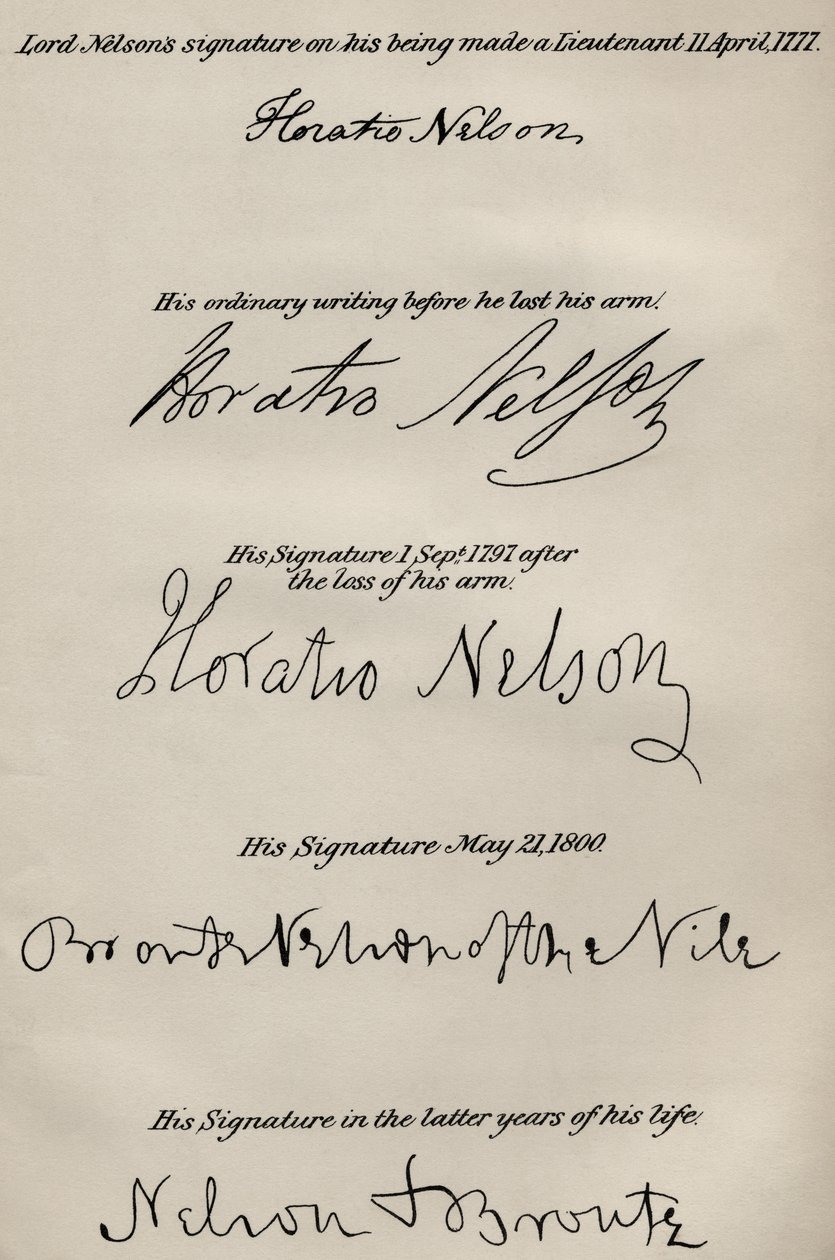 Lord Nelson's signature on his being made a Lieutenant 11 April, 1777.
Horatio Nelson
His ordinary writing before he lost his arm.
Horatio Nelson
His Signature 1 Sept. 1797 after
the loss of his arm.
Horatio Nelson
His Signature May 21, 1800.
Bronte Nelson of the Nile
His Signature in the latter years of his life.
Nelson & Bronte